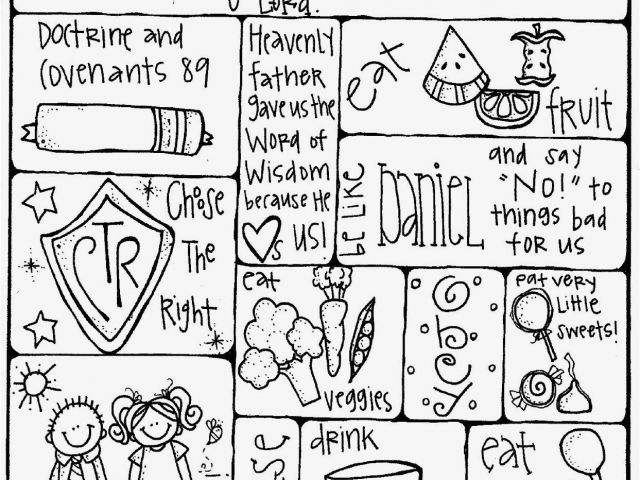 Lord.
Doctrine and
Covenants 89
Heavenly
father
gave us the
Word of
Wisdom
because He
s us!
eat
fruit
be like
Daniel
and say
"No!" to
things bad
for us
CTR
Choose
The
Right
eat
veggies
obey
eat very
little
sweets!
drink
eat